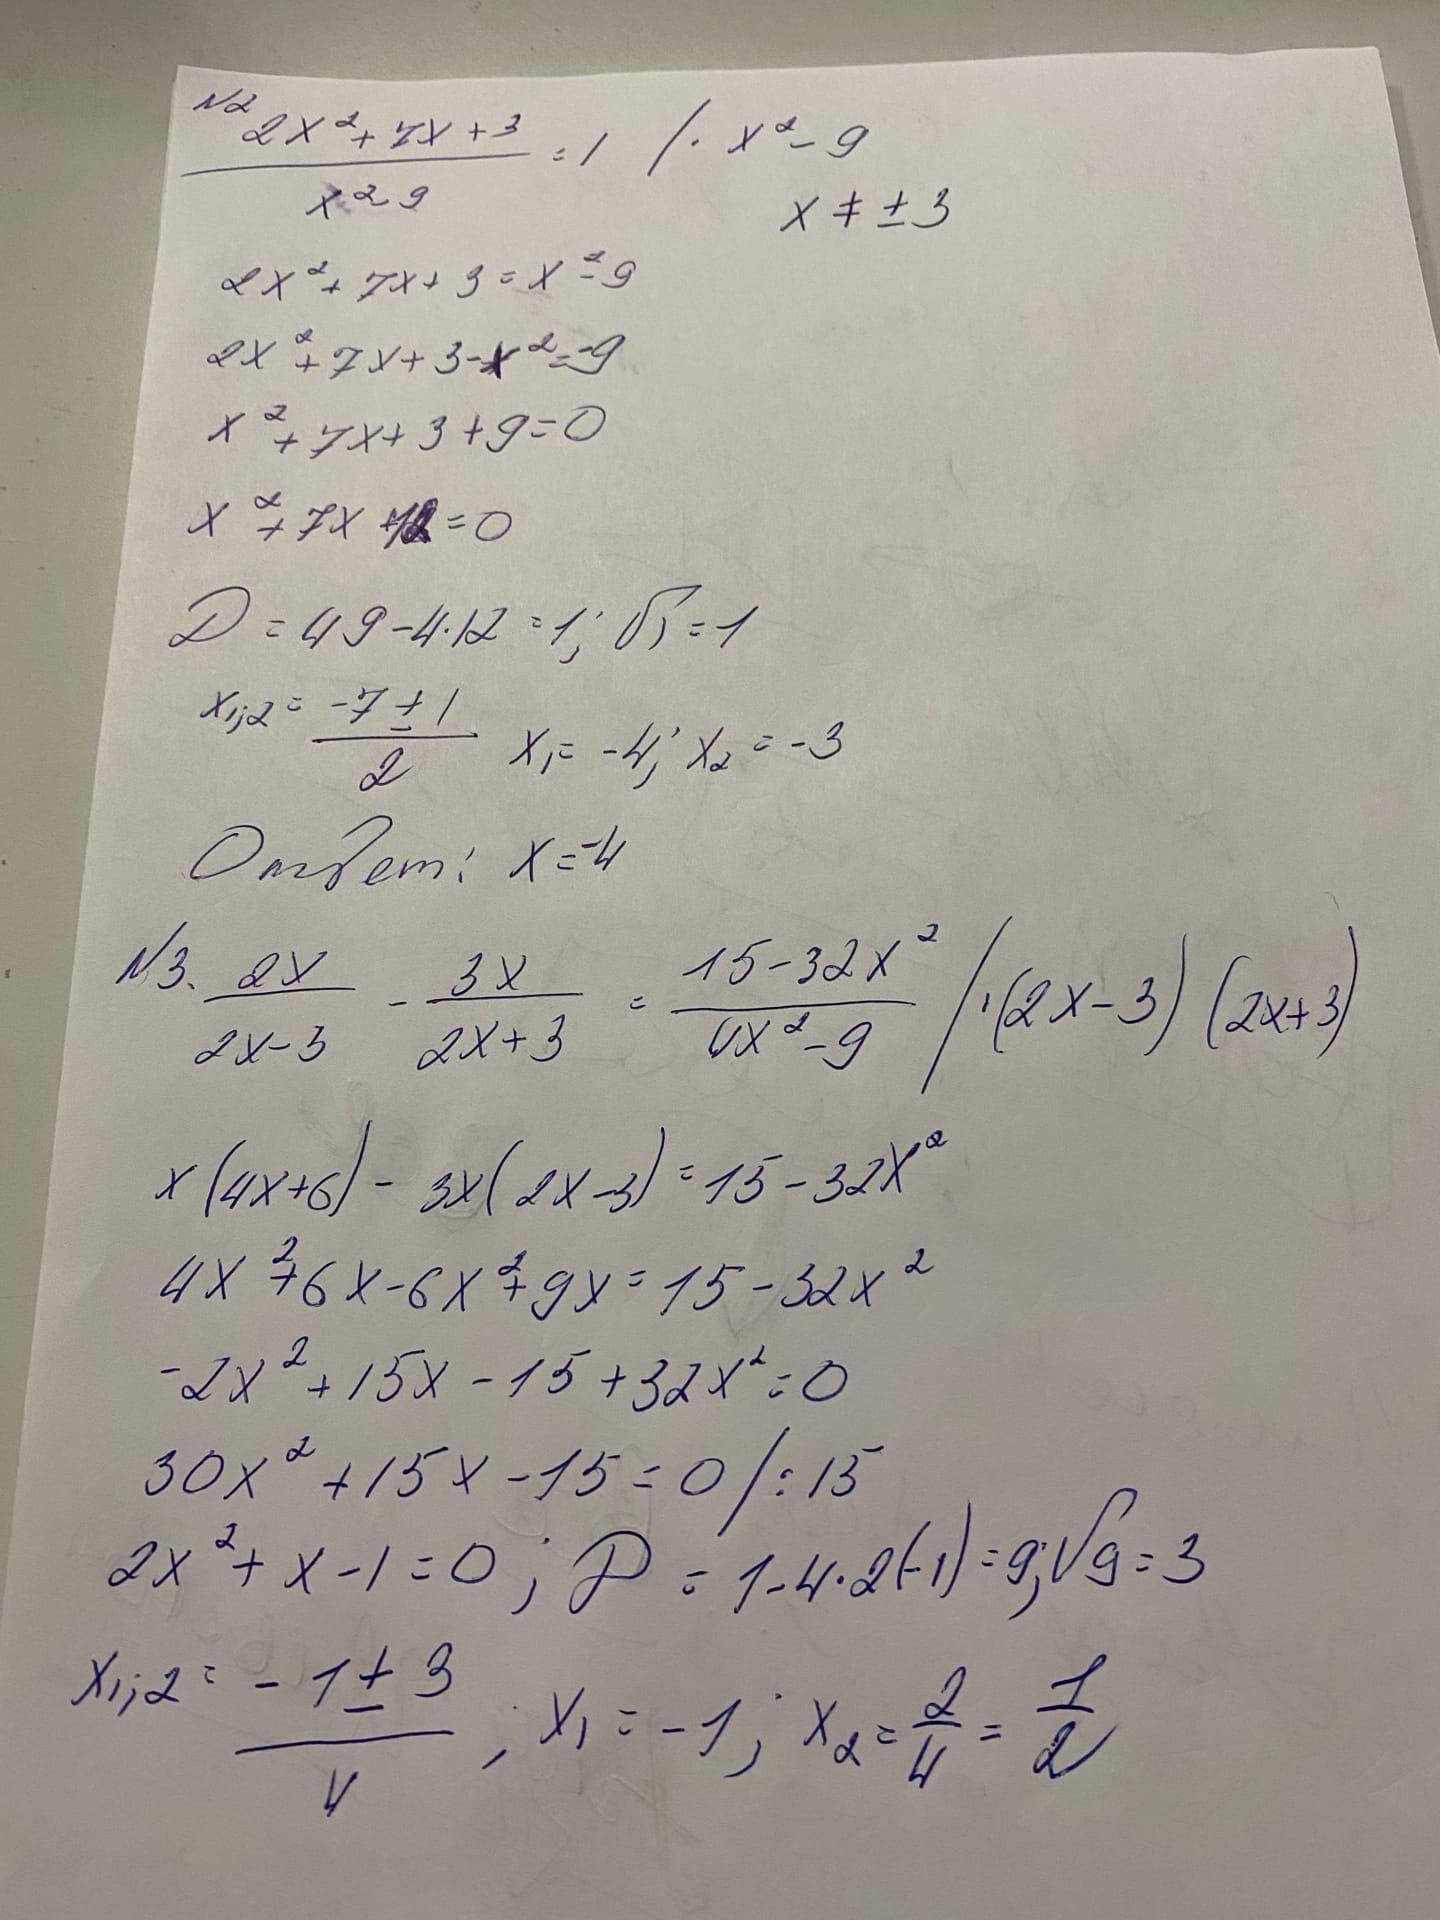 N2 (2x²+7x+3)/(x²-9) = 1 /· x²-9
x ≠ ±3
2x²+7x+3=x²-9
2x²+7x+3-x²=-9
x²+7x+3+9=0
x²+7x+12=0
D=49-4·12=1; √1=1
x₁;₂=(-7±1)/2 x₁=-4; x₂=-3
Ответ: x=-4
N3. 2x/(2x-3) - 3x/(2x+3) = (15-32x²)/(4x²-9) /·(2x-3)(2x+3)
x(4x+6)-3x(2x-3)=15-32x²
4x²+6x-6x²+9x=15-32x²
-2x²+15x-15+32x²=0
30x²+15x-15=0/:15
2x²+x-1=0; D=1-4·2(-1)=9; √9=3
x₁;₂=(-1±3)/4; x₁=-1; x₂=2/4=1/2